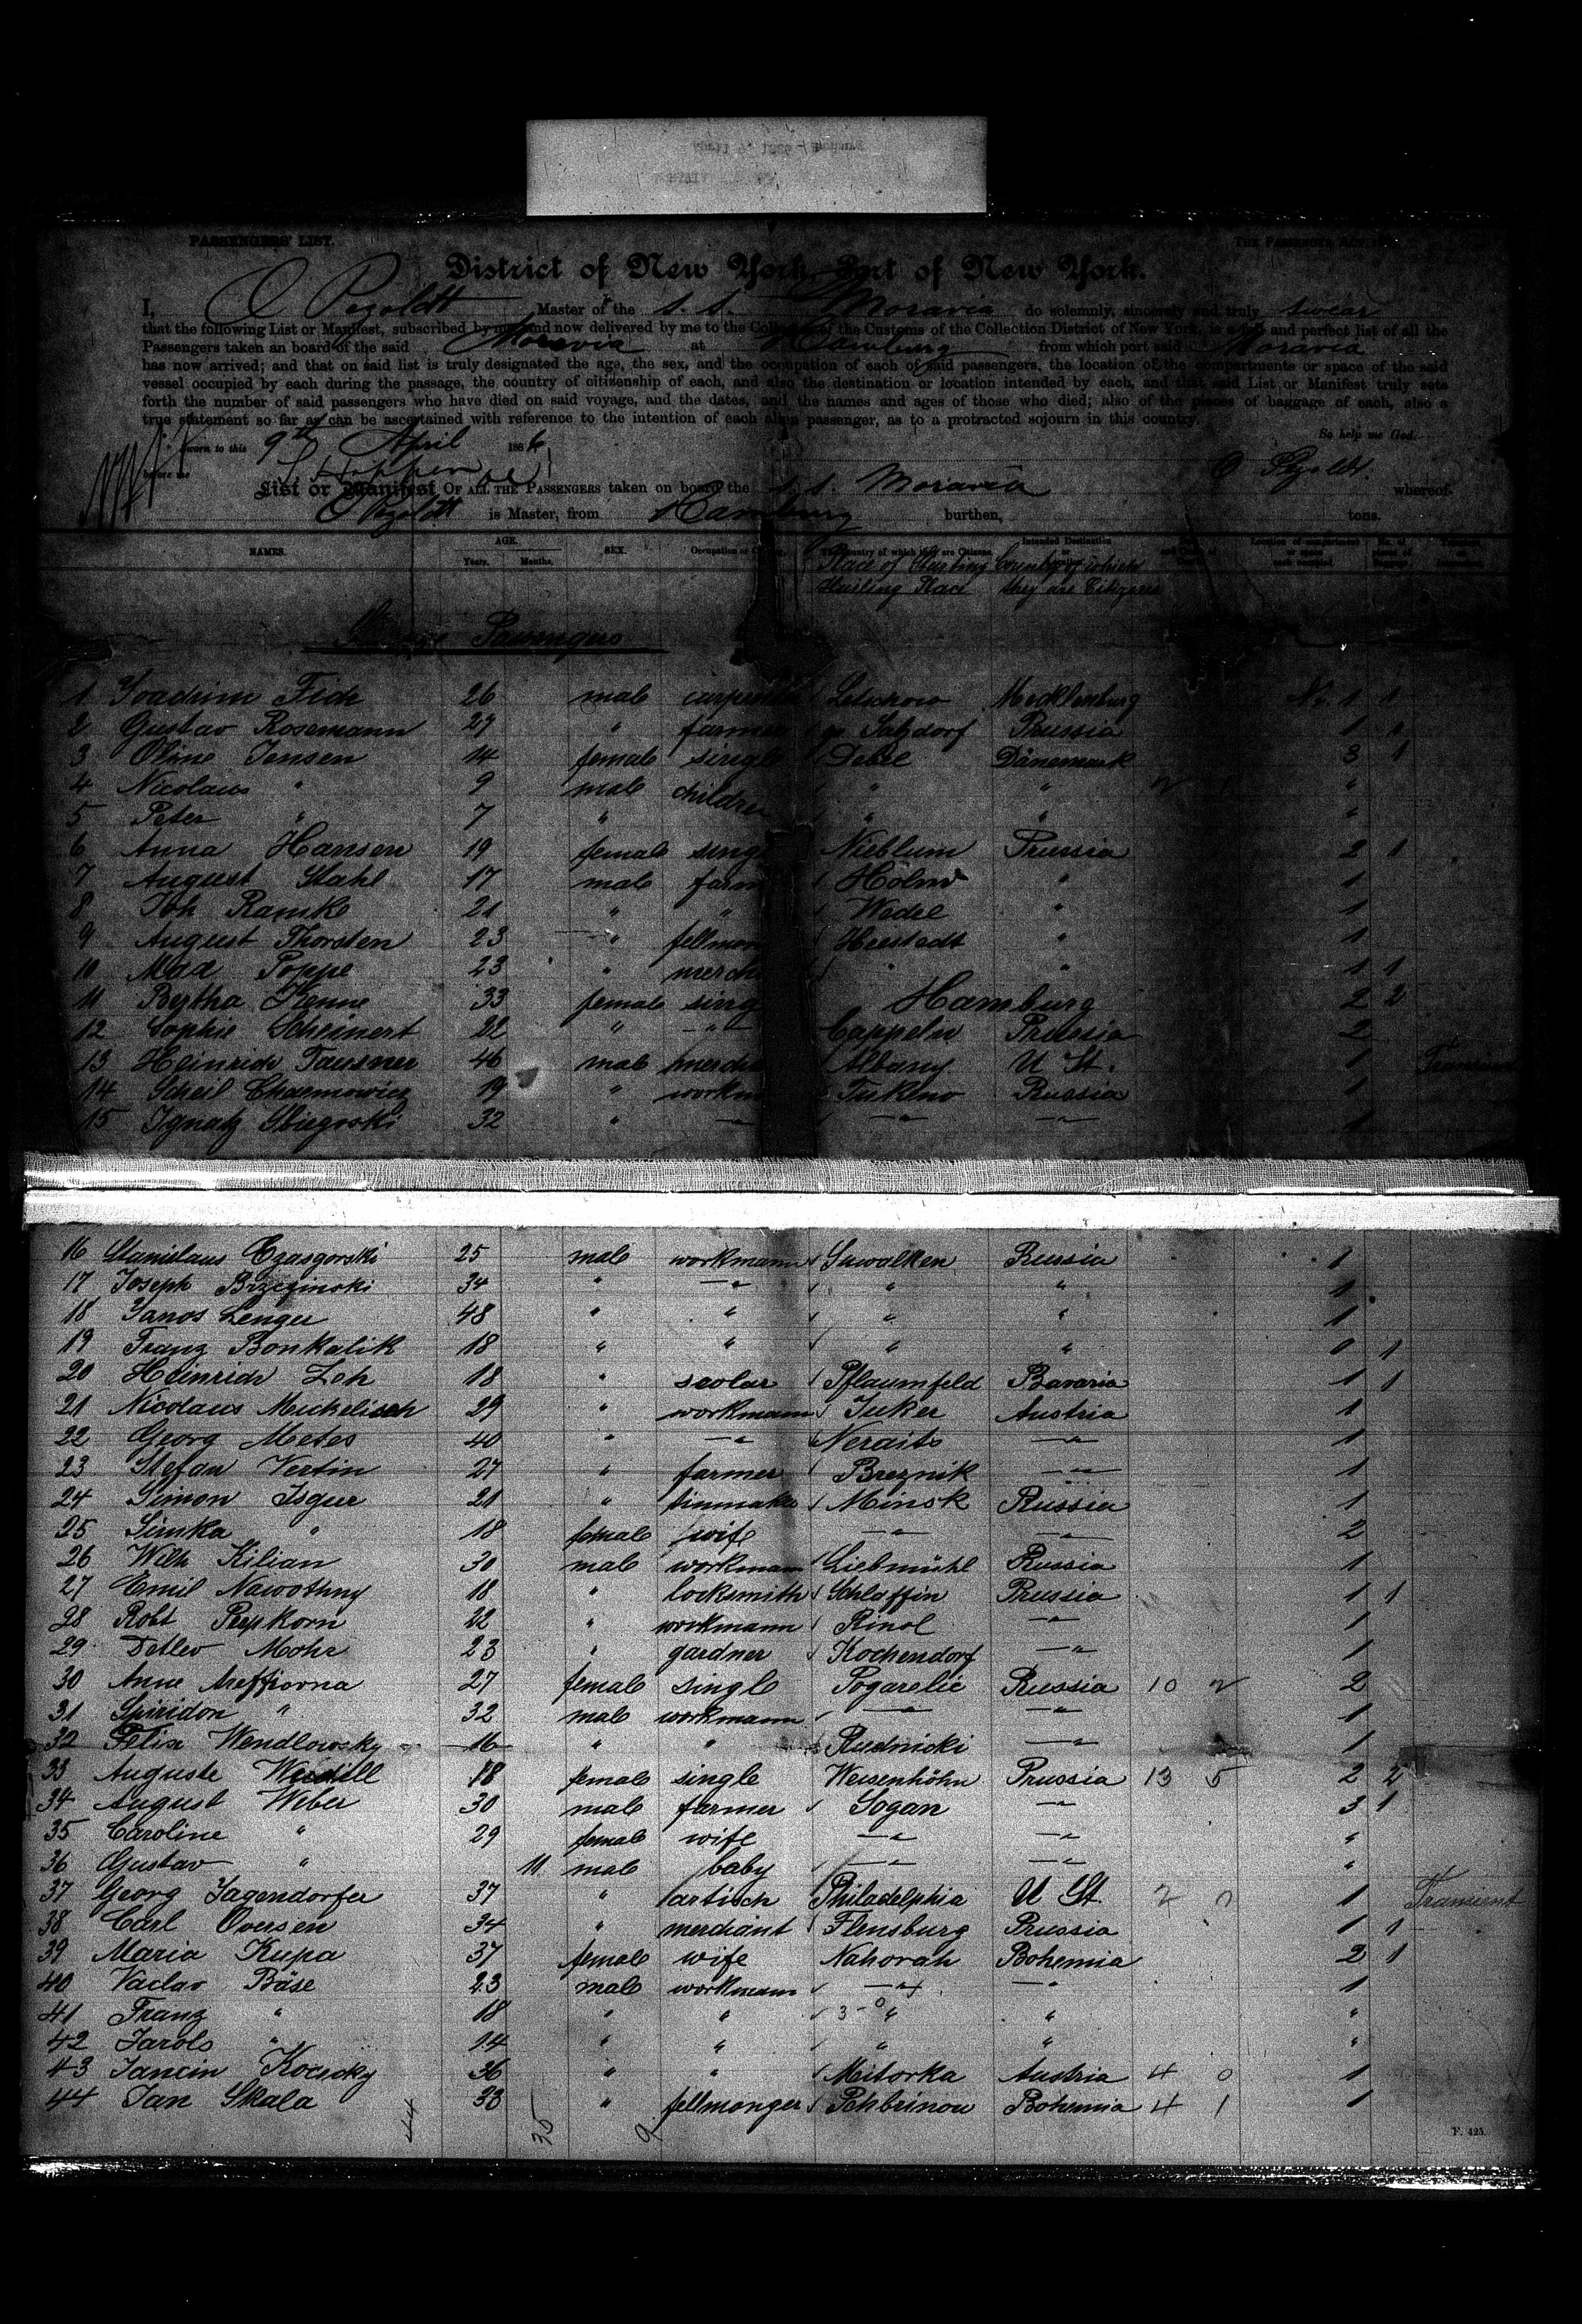 PASSENGERS' LIST. THE PASSENGER ACT
District of New York, Port of New York.
I, O Pezoldt Master of the s. s. Moravia do solemnly, sincerely and truly swear
that the following List or Manifest, subscribed by me, and now delivered by me to the Collector of the Customs of the Collection District of New York, is a full and perfect list of all the
Passengers taken on board of the said Moravia at Hamburg from which port said Moravia
has now arrived; and that on said list is truly designated the age, the sex, and the occupation of each of said passengers, the location of the compartments or space of the said
vessel occupied by each during the passage, the country of citizenship of each, and also the destination or location intended by each, and that said List or Manifest truly sets
forth the number of said passengers who have died on said voyage, and the dates, and the names and ages of those who died; also of the pieces of baggage of each, also a
true statement so far as can be ascertained with reference to the intention of each alien passenger, as to a protracted sojourn in this country.
So help me God.
Sworn to this 9th April 1886
before me O Pezoldt
List or Manifest OF ALL THE PASSENGERS taken on board the s. s. Moravia whereof
O Pezoldt is Master, from Hamburg burthen, tons.
NAMES. AGE. Years. Months. SEX. Occupation or Calling. The Country of which they are Citizens. Intended Destination
Place of Starting Country of which
they are Citizens
Passengers
1 Joachim Fick 26 male Mecklenburg No. 1 1
2 Gustav Rosemann 27 " farmer Prussia 1
3 Oline Jensen 14 female single Dänemark 3 1
4 Nicolaus " 9 male children " " "
5 Peter " 7 " " " "
6 Anna Hansen 19 female Nieblum Prussia 2 1
7 August Stahl 17 male Holm " 1
8 Joh Ramke 21 " " Wedel " 1
9 August Thorsten 23 " " 1
10 Max Poppe 23 " " " 1 1
11 Bertha Henne 33 female Hamburg 2 2
12 Sophie Scheinert 22 " " Cappeln Prussia 2
13 Heinrich Taussner 46 male Albany U St. 1 Transient
14 19 " Russia 1
15 Ignatz 32 " " " " 1
16 Stanislaus Czasgorski 25 male workmann Suwalken Russia 1
17 Joseph Brzezinski 34 " " " " 1
18 Janos Lenger 48 " " " " 1
19 Franz Bonkalik 18 " " " " 0 1
20 Heinrich Zeh 18 " scolar Pflaumfeld Bavaria 1 1
21 Nicolaus Michelisch 29 " workmann Juker Austria 1
22 Georg Metes 40 " " Neraits " 1
23 Stefan Vertin 27 " farmer Breznik " 1
24 Simon Isgur 21 " tinmaker Minsk Russia 1
25 Simka " 18 female wife " " 2
26 Wilh Kilian 30 male workmann Liebmühl Russia 1
27 Emil Nawothny 18 " locksmith Schlaffin Prussia 1 1
28 Robt Repkorn 22 " workmann Rinol " 1
29 Detlev Mohr 23 " gardner Kochendorf " 1
30 Anne Areffiovna 27 female single Pogarelie Russia 10 2 2
31 Spiridon " 32 male workmann " " 1
32 Felix Wendlowsky 16 " " Rudnicki " 1
33 Auguste Weidell 18 female single Weisenhöhn Prussia 13 5 2 2
34 August Weber 30 male farmer Sogan " 3 1
35 Caroline " 29 female wife " " "
36 Gustav " 11 male baby " " "
37 Georg Jagendorfer 37 " artisch Philadelphia U St. 2 0 1 Transient
38 Carl Oversen 34 " merchant Flensburg Prussia 1 1
39 Maria Kupa 37 female wife Nahorah Bohemia 2 1
40 Vaclav Bäse 23 male workmann " " 1
41 Franz " 18 " " 3-0 " " "
42 Jarols " 14 " " " " "
43 Jancin Kocscky 36 " " Mitorka Austria 4 0 1
44 Jan Skala 33 " fellmonger Pohbrinow Bohemia 4 1 1
44 35 9
F. 425.